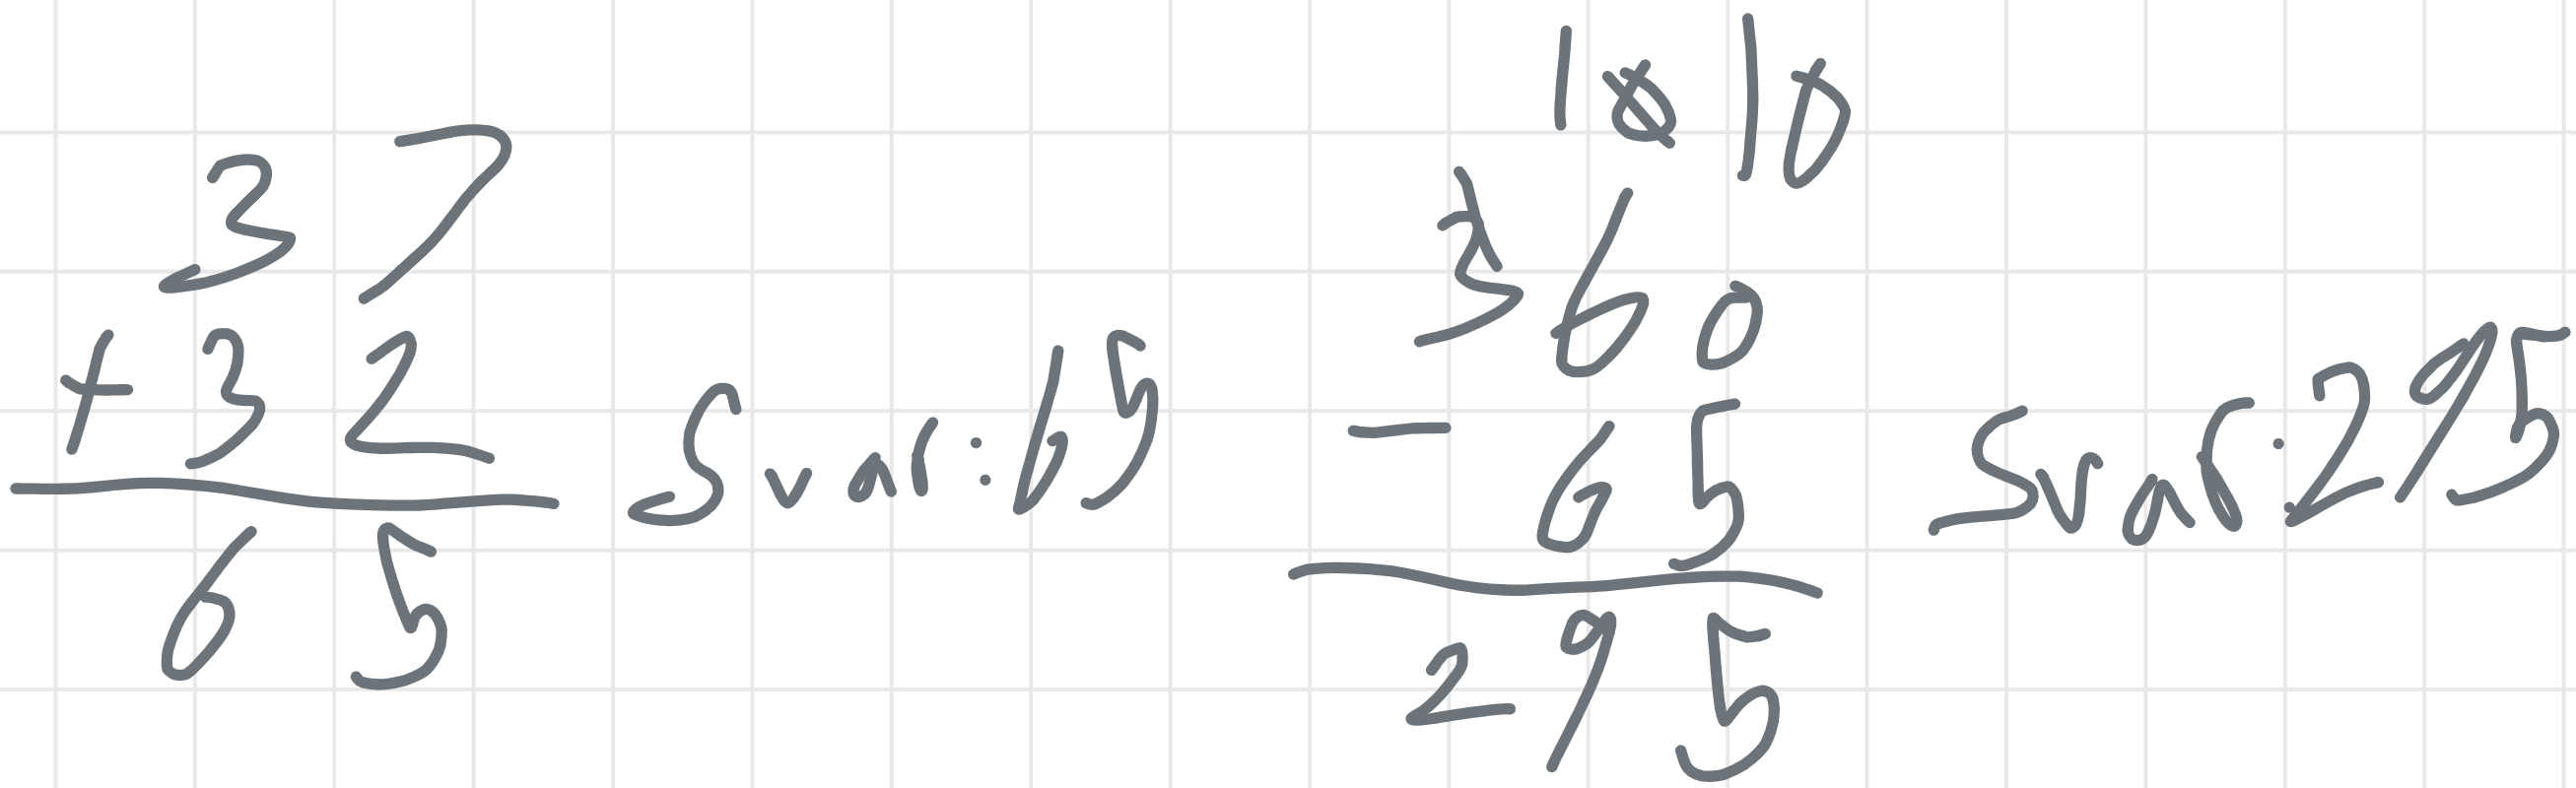 37
+ 32
65
Svar: 65
10 10
360
- 65
295
Svar: 295